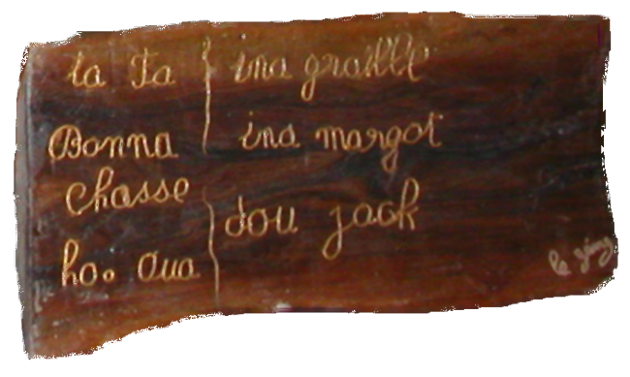 la Fa
Bonna
chasse
ho. Oua
ina graille
ina margot
dou jack
le